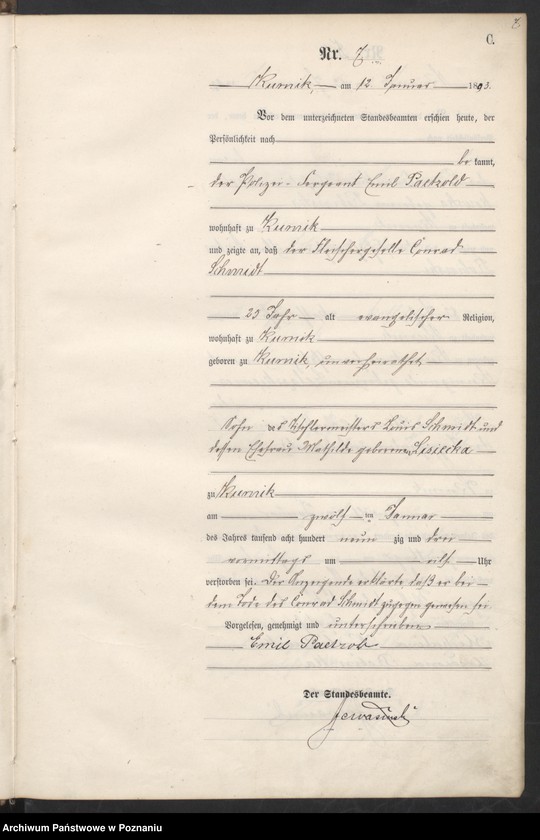 7
C.
Nr. 7
Kurnik, am 12 Januar 1893.
Vor dem unterzeichneten Standesbeamten erschien heute, der
Persönlichkeit nach
be kannt,
der Polizei-Sergeant Emil Paetzold
wohnhaft zu Kurnik
und zeigte an, daß der Fleischergeselle Conrad
Schmidt
23 Jahr alt evangelischer Religion,
wohnhaft zu Kurnik
geboren zu Kurnik, unverheirathet
Sohn des Tischlermeisters Louis Schmidt und
dessen Ehefrau Mathilde geborenen Lisiecka
zu Kurnik
am zwölf ten Januar
des Jahres tausend acht hundert neun zig und drei
vormittags um elf Uhr
verstorben sei. Der Anzeigende erklärte daß er bei
dem Tode des Conrad Schmidt zugegen gewesen sei.
Vorgelesen, genehmigt und unterschrieben
Emil Paetzold
Der Standesbeamte.
Archiwum Państwowe w Poznaniu